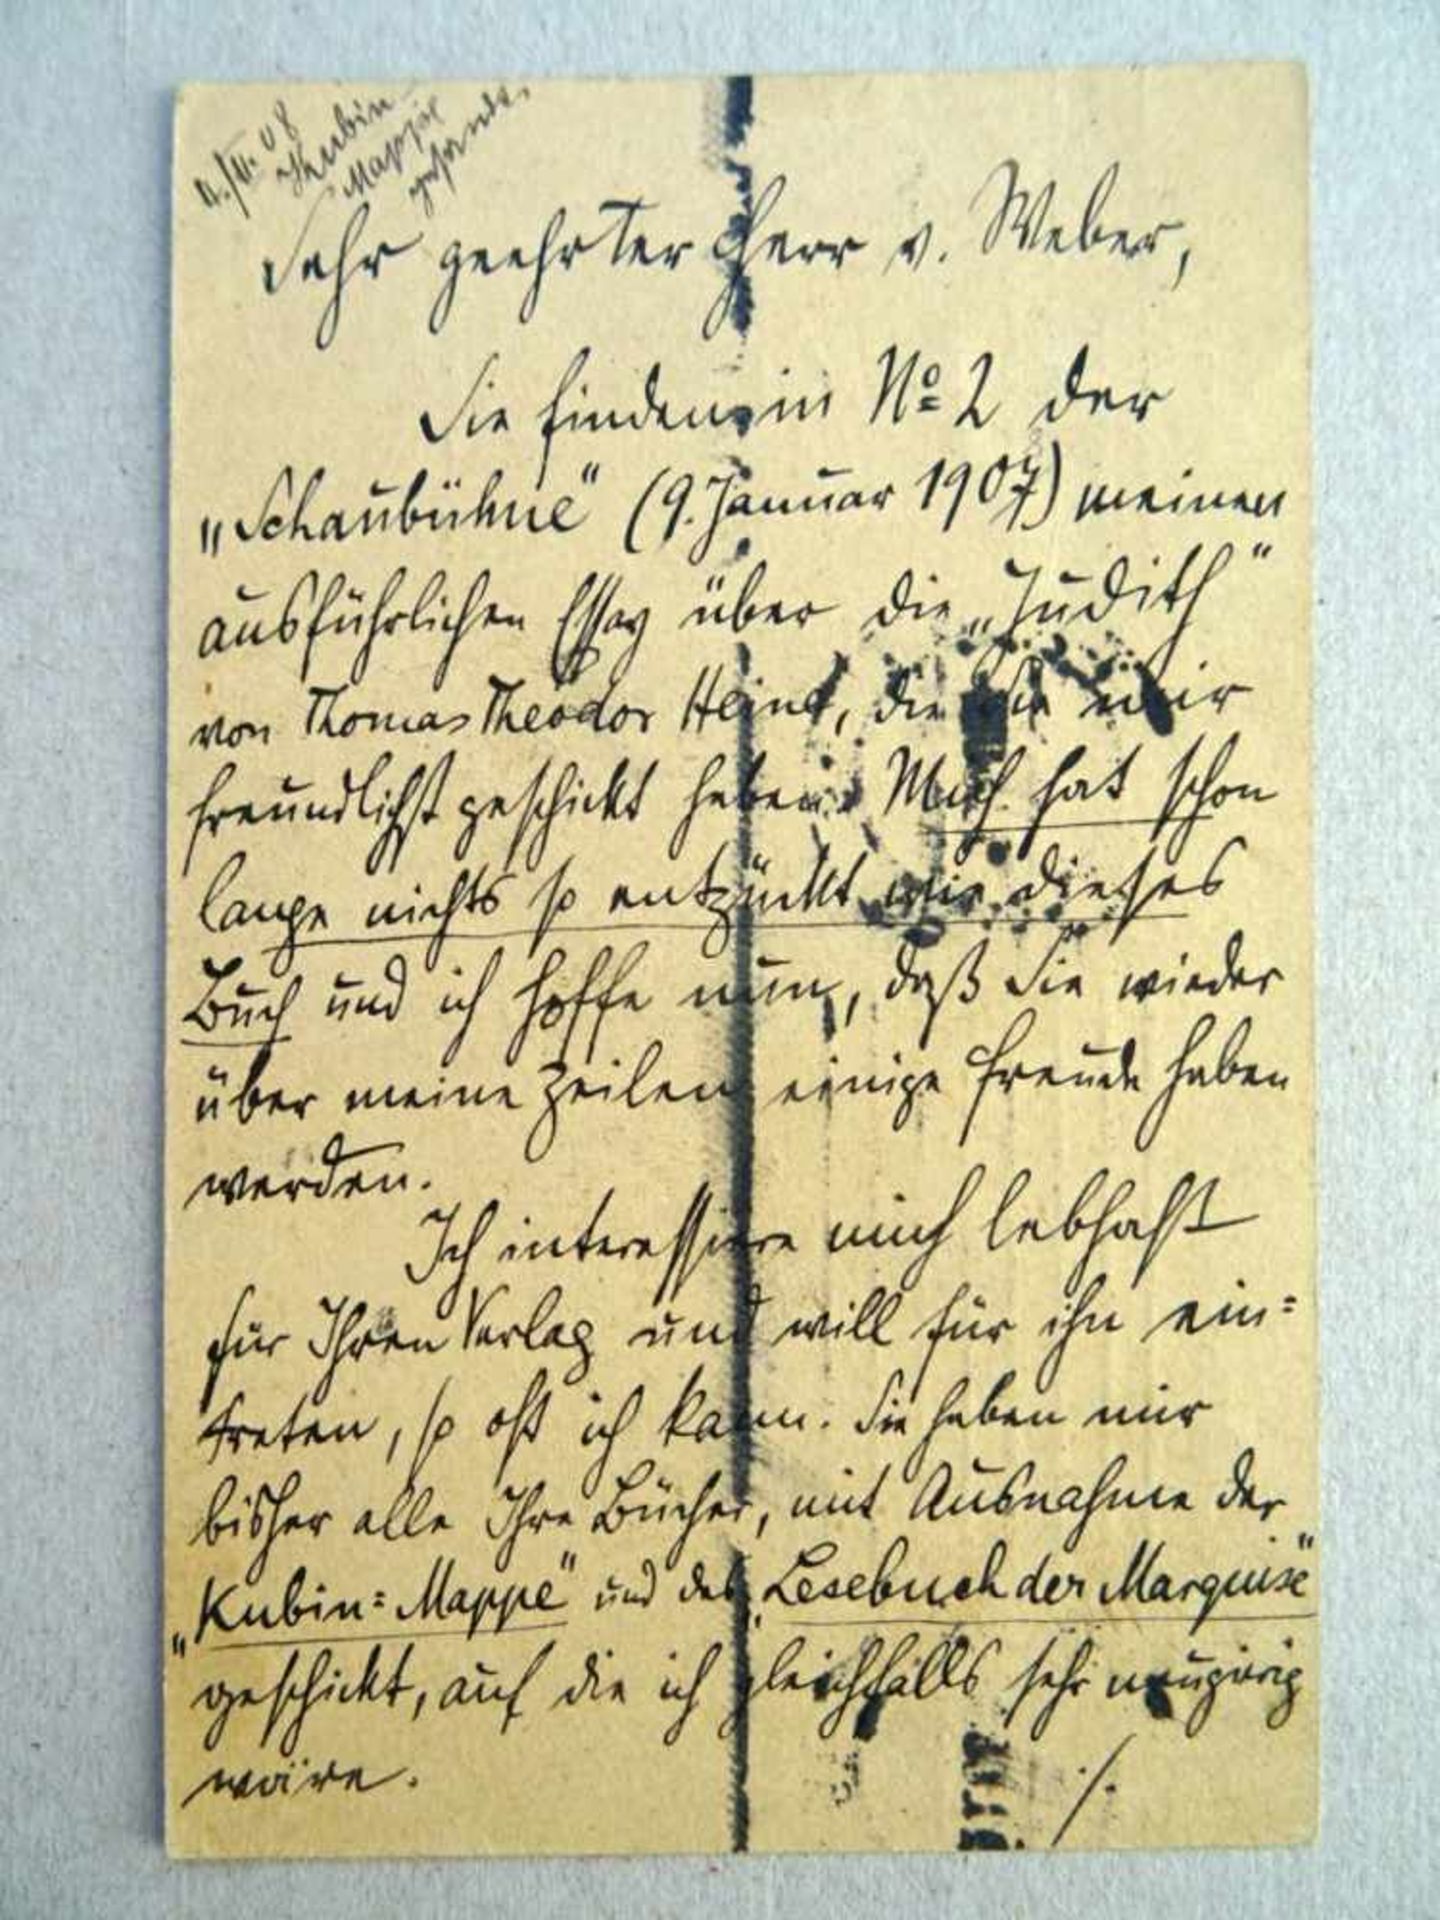 Kubin
Mappe
gesandt.
Sehr geehrter Herr v. Weber,
Sie finden in No 2 der
„Schaubühne" (9. Januar 1907) meinen
ausführlichen Essay über die „Judith"
von Thomas Theodor Heine, die Sie mir
freundlichst geschickt haben. Mich hat schon
lange nichts so entzückt wie dieses
Buch und ich hoffe nun, daß Sie wieder
über meine Zeilen einige Freude haben
werden.
Ich interessiere mich lebhaft
für Ihren Verlag und will für ihn ein=
treten, so oft ich kann. Sie haben mir
bisher alle Ihre Bücher, mit Ausnahme der
„Kubin=Mappe" und des „Lesebuch der Marquise"
geschickt, auf die ich gleichfalls sehr neugierig
wäre. ./.